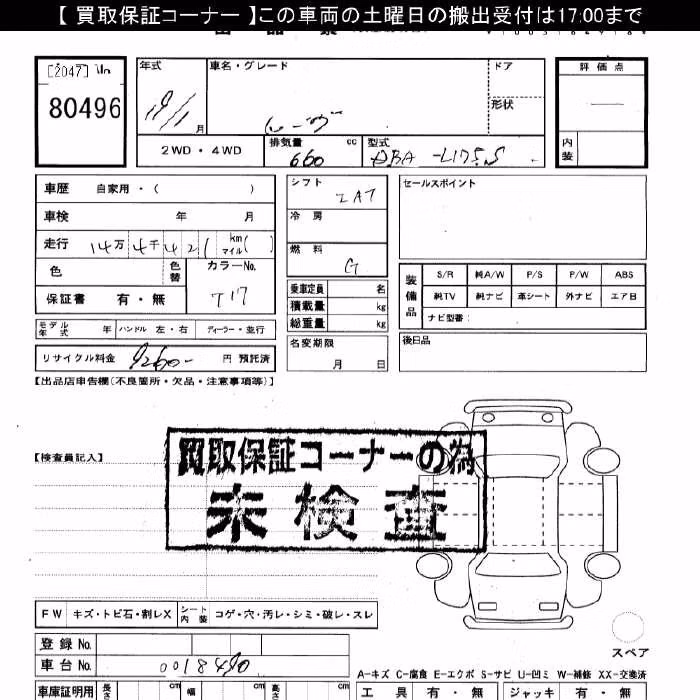 【 買取保証コーナー 】この車両の土曜日の搬出受付は17:00まで
[2047]
80496
年式
月
車名・グレード
ドア
形状
評価点
内装
2WD・4WD
排気量 cc
660
型式
DBA-L175S
車歴 自家用・( )
車検 年 月
走行 14万4千421 km マイル( )
色 色替
カラーNo.
T17
保証書 有・無
シフト
IAT
冷房
燃料
G
乗車定員 名
積載量 kg
総重量 kg
名変期限
月 日
セールスポイント
装備品
S/R 純A/W P/S P/W ABS
純TV 純ナビ 革シート 外ナビ エアB
ナビ型番:
後日品
モデル年式 年 ハンドル 左・右 ディーラー・並行
リサイクル料金 9260- 円 預託済
【出品店申告欄(不良箇所・欠品・注意事項等)】
【検査員記入】
買取保証コーナーの為
未検査
FW キズ・トビ石・割レX シート内装 コゲ・穴・汚レ・シミ・破レ・スレ
スペア
登録No.
車台No. 0018490
A-キズ C-腐食 E-エクボ S-サビ U-凹ミ W-補修 XX-交換済
車庫証明用 長さ cm 幅 cm 高さ cm
工具 有・無 ジャッキ 有・無